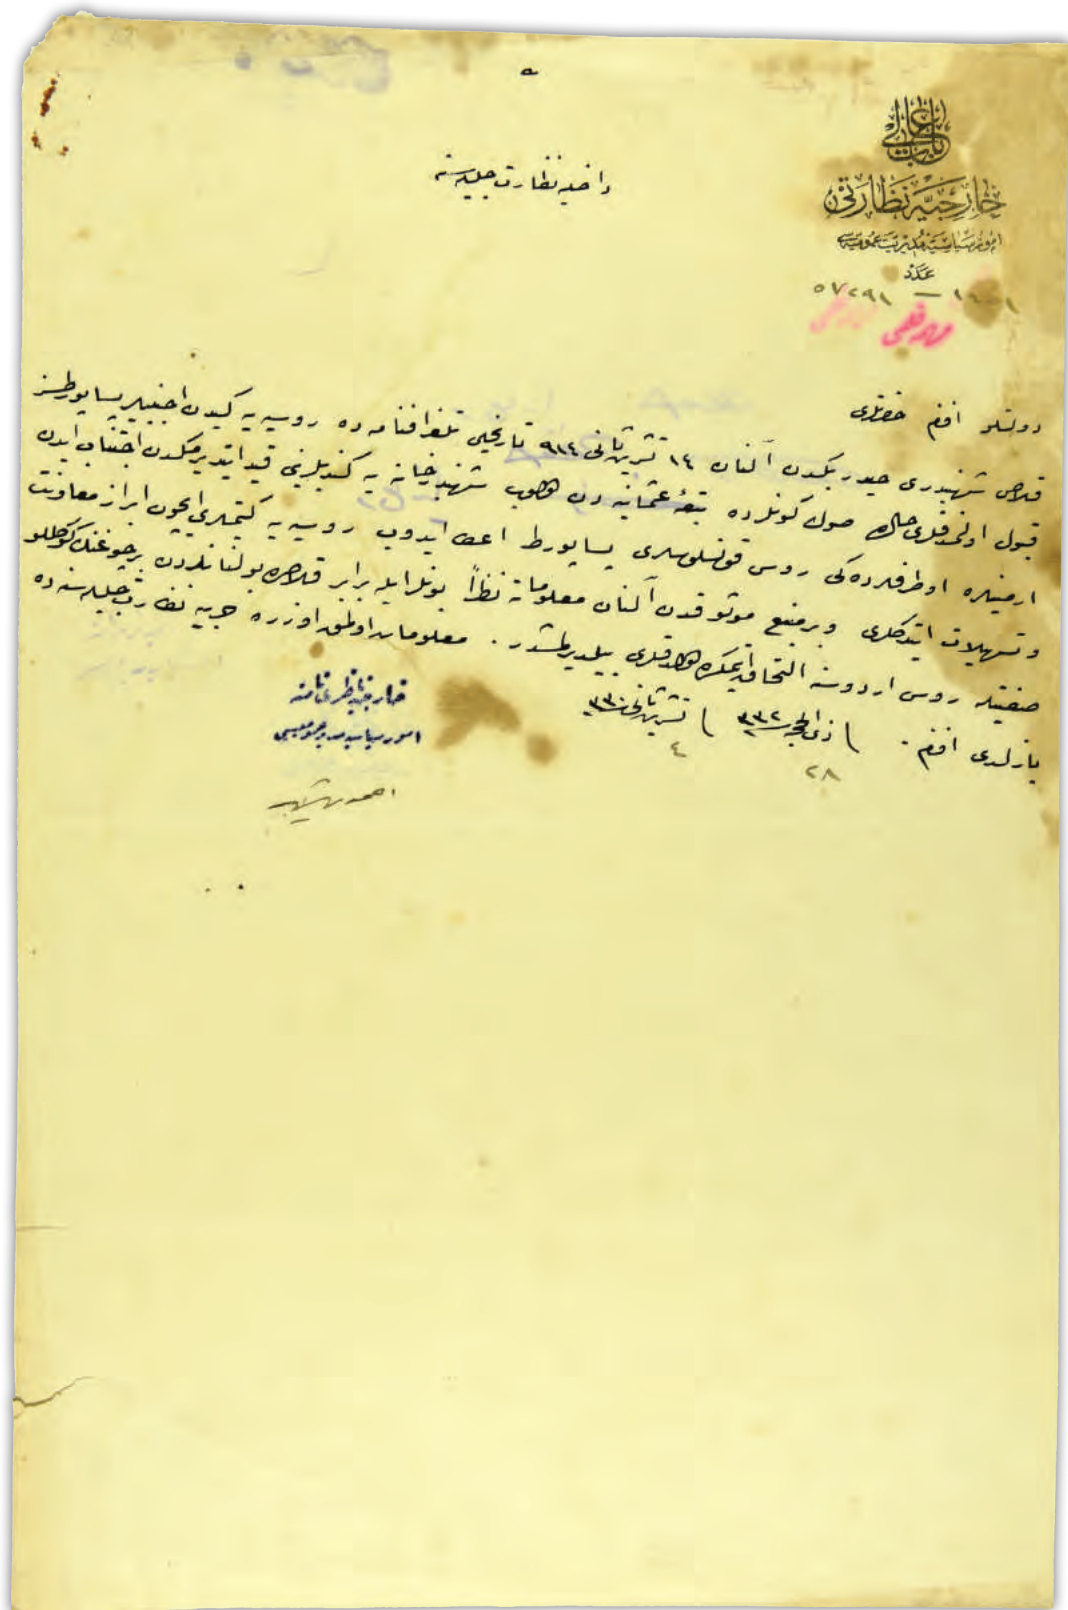 باب عالی
خارجیه نظارتی
امور سیاسیه مدیریت عمومیه سی
عدد
٥٧٢٩١
داخلیه نظارت جلیله سنه
دولتلو افندم حضرتلری
قلاص شهبندری حیدر بكدن آلنان ١٤ تشرین ثانی ٩١٤ تاریخلی تلغرافنامه ده روسیه یه كیدن اجنبیلر پساپورطسز
قبول اولنمدقلری حالده صوك كونلرده بقعهٔ عثمانیه دن كلوب شهبندرخانه یه كندیلرینی قید ایتدیرمكدن اجتناب ایدن
ارمنیلره اوطرفلرده كی روس قونسلوسلری پساپورط اعطا ایدوب روسیه یه كیتملری ایچون ابراز معاونت
وتسهیلات ایتدكلری وبر منبع موثوقدن آلنان معلوماته نظراً بونلر ایله برابر قلاصده بولنانلردن برچوغنك كوكللو
صفتیله روس اردوسنه التحاق ایتمكده اولدقلری بیلدیرلمشدر . معلومات اولمق اوزره حربیه نظارت جلیله سنه ده
یازلدی افندم . ٢٨ ذی الحجه سنه ٣٣٢ ٤ تشرین ثانی سنه ٣٣٠
خارجیه ناظری نامنه
امور سیاسیه مدیر عمومیسی